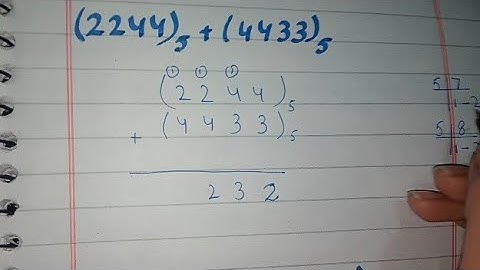 (2244)₅ + (4433)₅
① ① ①
(2 2 4 4)₅
+ (4 4 3 3)₅
2 3 2
5 7
1-2
5 8
1-